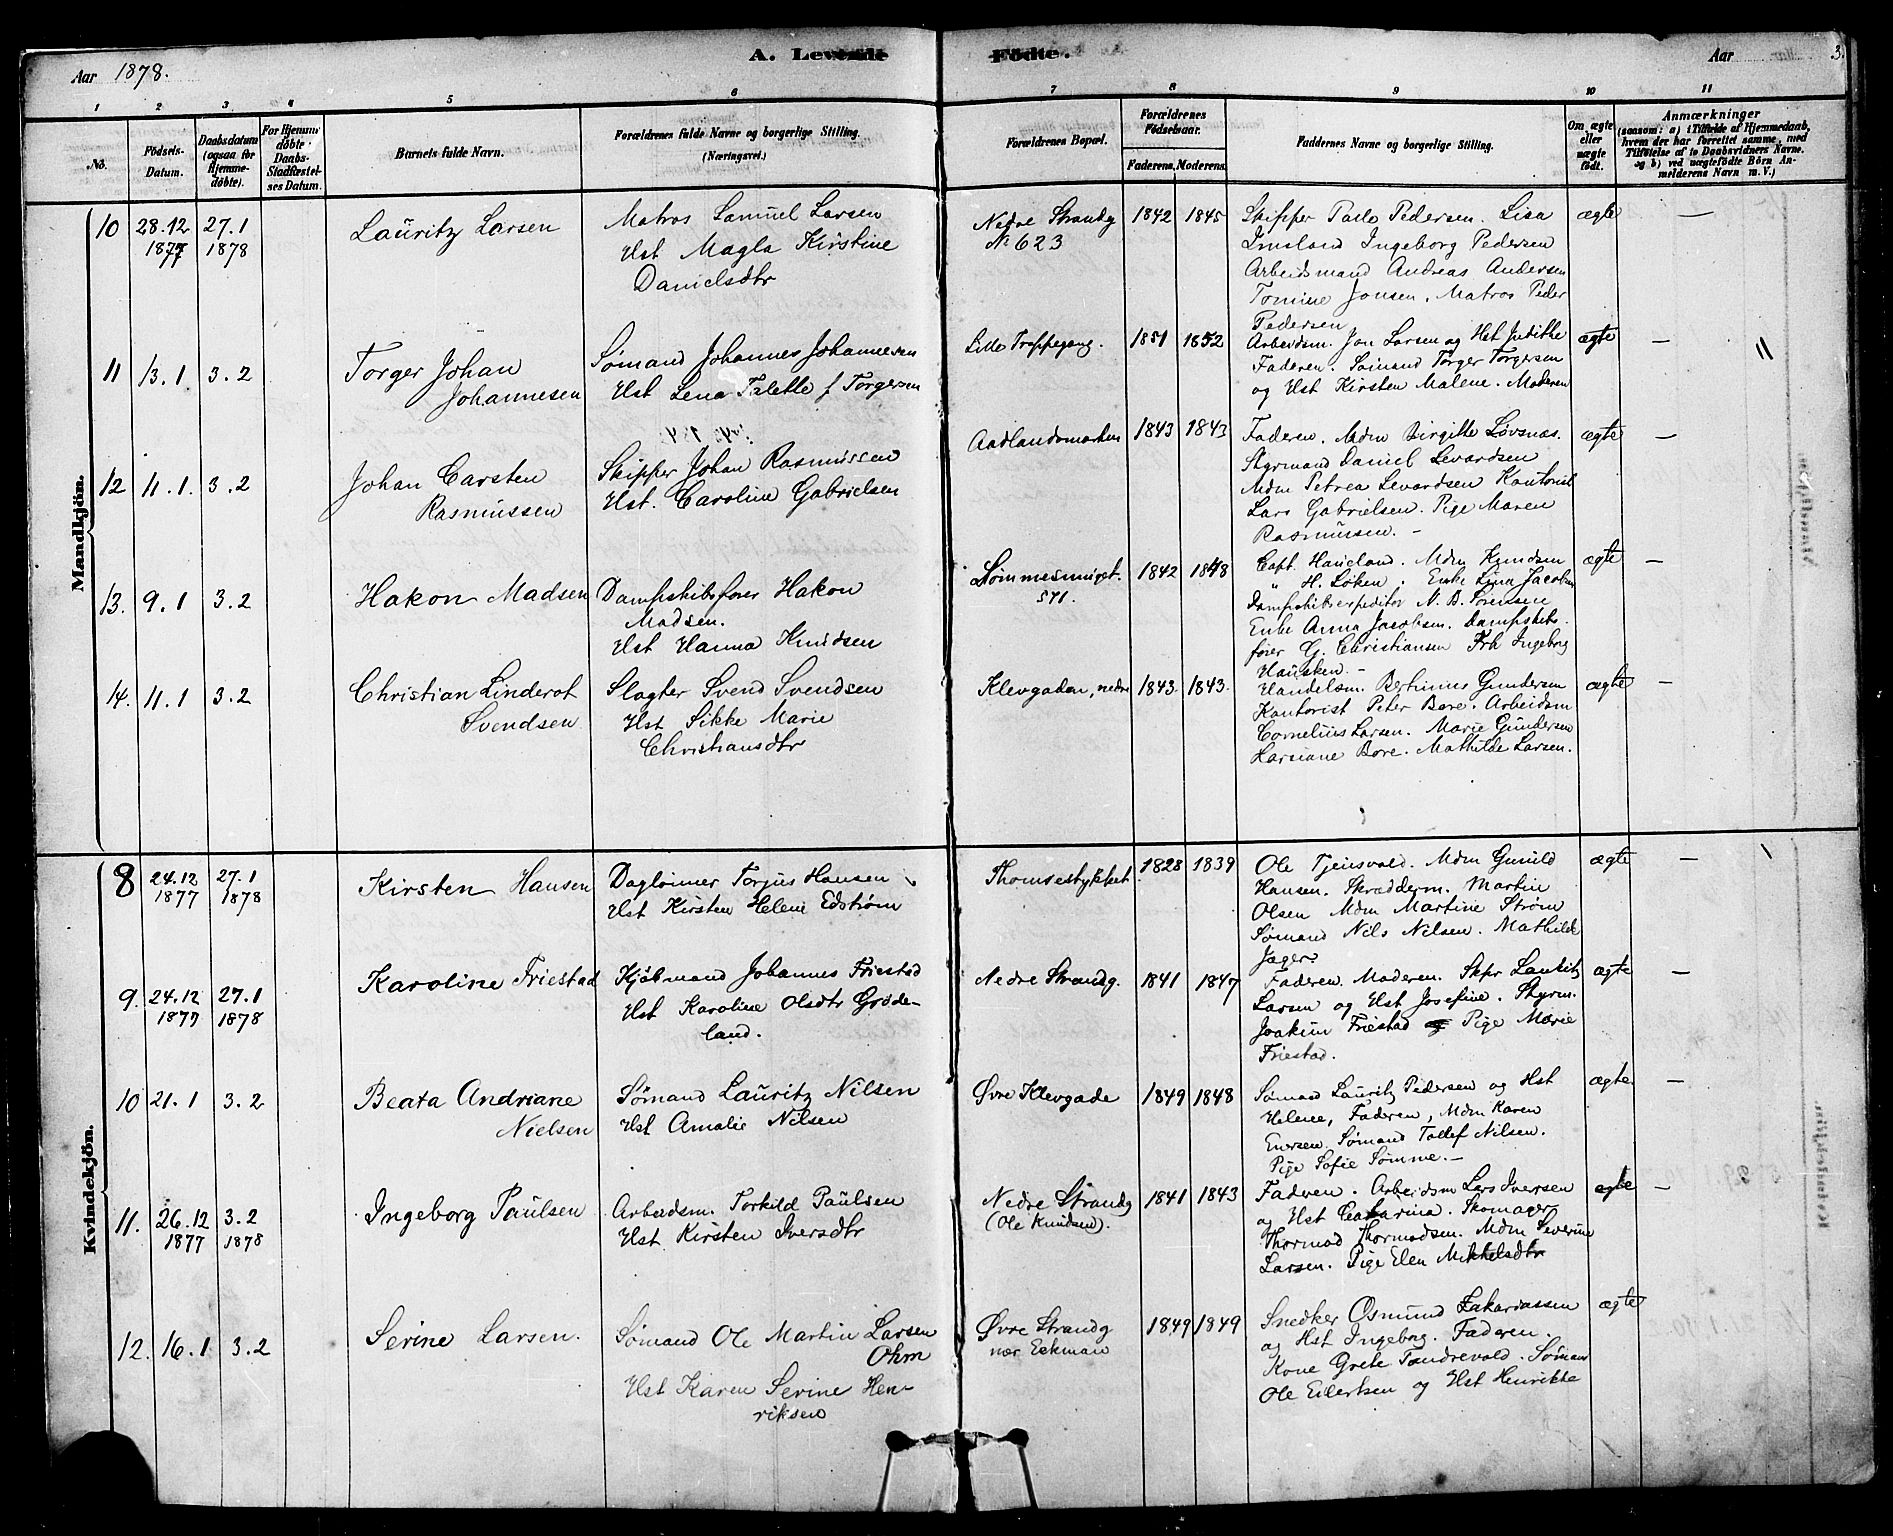 Aar 1878. A. Levende Födte. Aar 3.
1 2 3 4 5 6 7 8 9 10 11
No. Födsels-Datum. Daabsdatum (ogsaa for Hjemmedöbte). For Hjemmedöbte: Daabs-Stadfæstelses Datum. Barnets fulde Navn. Forældrenes fulde Navne og borgerlige Stilling. (Næringsvei.) Forældrenes Bopæl. Forældrenes Födselsaar. Faderens. Moderens. Faddernes Navne og borgerlige Stilling. Om ægte eller uægte födt. Anmærkninger (saasom: a) i Tilfælde af Hjemmedaab, hvem der har forrettet samme, med Tilföielse af to Daabsvidners Navne. og b) ved uægtefödte Börn Anmelderens Navn m. V.)
Mandkjön.
10 28.12 27.1 Lauritz Larsen Matros Samuel Larsen Nedre Strandg 1842 1845 Skipper Paulo Pedersen. Lisa ægte —
1877 1878 Hst Magla Kirstine No 623 Imsland Ingeborg Pedersen
Danielsdtr Arbeidsmand Andreas Andersen
Tomine Jonsen. Matros Peder
Pedersen
11 13.1 3.2 Torger Johan Sømand Johannes Johannesen Lille Trappegang. 1851 1852 Arbeidsm. Jon Larsen og Hst Judithe ægte —
Johannesen Hst Lena Talette f Torgersen Faderen. Sømand Torger Torgersen
og Hst Kirsten Malene. Moderen
12 11.1. 3.2 Johan Carsten Skipper Johan Rasmussen Aadlandsmarken 1843 1843 Faderen. Mdm Birgitte Løvsnæs. ægte —
Rasmussen Hst. Caroline Gabrielsen Styrmand Daniel Levardsen
Mdm Petrea Levardsen Kontorist
Lars Gabrielsen. Pige Maren
Rasmussen. —
13. 9.1 3.2 Hakon Madsen Dampskibsfører Hakon 1842 1848 Capt. Haueland. Mdm Knudsen ægte —
Madsen. 571. " H. Løken. Enke Lina Jacobsen
Hst Hanna Knudsen Dampskibsexpeditør N. B. Sørensen
Enke Anna Jacobsen. Dampskibs-
fører G. Christiansen Frk Ingeborg
Hausken. —
14. 11.1 3.2 Christian Linderot Slagter Svend Svendsen Klevgaden, nedre 1843. 1843. Handelsm. Bertinius Gundersen ægte —
Svendsen Hst Sikke Marie Kontorist Peter Bore. Arbeidsm
Christiansdtr Cornelius Larsen. Marie Gundersen
Bore. Mathilde Larsen.
Kvindekjön.
8 24.12 27.1 Kirsten Hansen Dagløinner Torjus Hansen Thomsestykket 1828 1839 Ole Tjensvold. Mdm Gunild ægte —
1877 1878 Hst Kirsten Helene Edstrøm Hansen. Skrædderm. Martin
Olsen Mdm Martine Strøm
Sømand Nils Nilsen. Mathilde
Jager
9. 24.12 27.1 Karoline Friestad Kjøbmand Johannes Friestad Nedre Strandg. 1841 1847 Faderen. Moderen. Skpr Lauritz ægte —
1877 1878 Hst Karoline Olsdtr Grøde- Larsen og Hst Josefine. Styrm.
land. Joakim Friestad og Pige Marie
Friestad.
10 21.1 3.2 Beata Andriane Sømand Lauritz Nilsen Øvre Klevgade 1849 1848 Sømand Lauritz Pedersen og Hst ægte. —
Nielsen Hst Amalie Nilsen Helene, Faderen, Mdm Karen
Enersen. Sømand Tollef Nilsen.
Pige Sofie Sømme. —
11. 26.12 3.2 Ingeborg Paulsen Arbeidsm. Torkild Paulsen Nedre Strandg 1841 1843 Faderen. Arbeidsm Lars Iversen ægte —
1877 1878 Hst Kirsten Iversdtr (Ole Knudsen). og Hst Catarina. Skomager
Thormod Thormodsen. Mdm Severine
Larsen. Pige Elen Mikkelsdtr
12. 16.1 3.2 Serine Larsen. Sømand Ole Martin Larsen Øvre Strandg 1849 1849 Snedker Osmund Zakariassen ægte
Ohm nær Eckman og Hst Ingeborg. Faderen.
Hst Karen Serine Hen- Kone Grete Tandrevold. Sømand
riksen Ole Eilertsen og Hst Henrikke